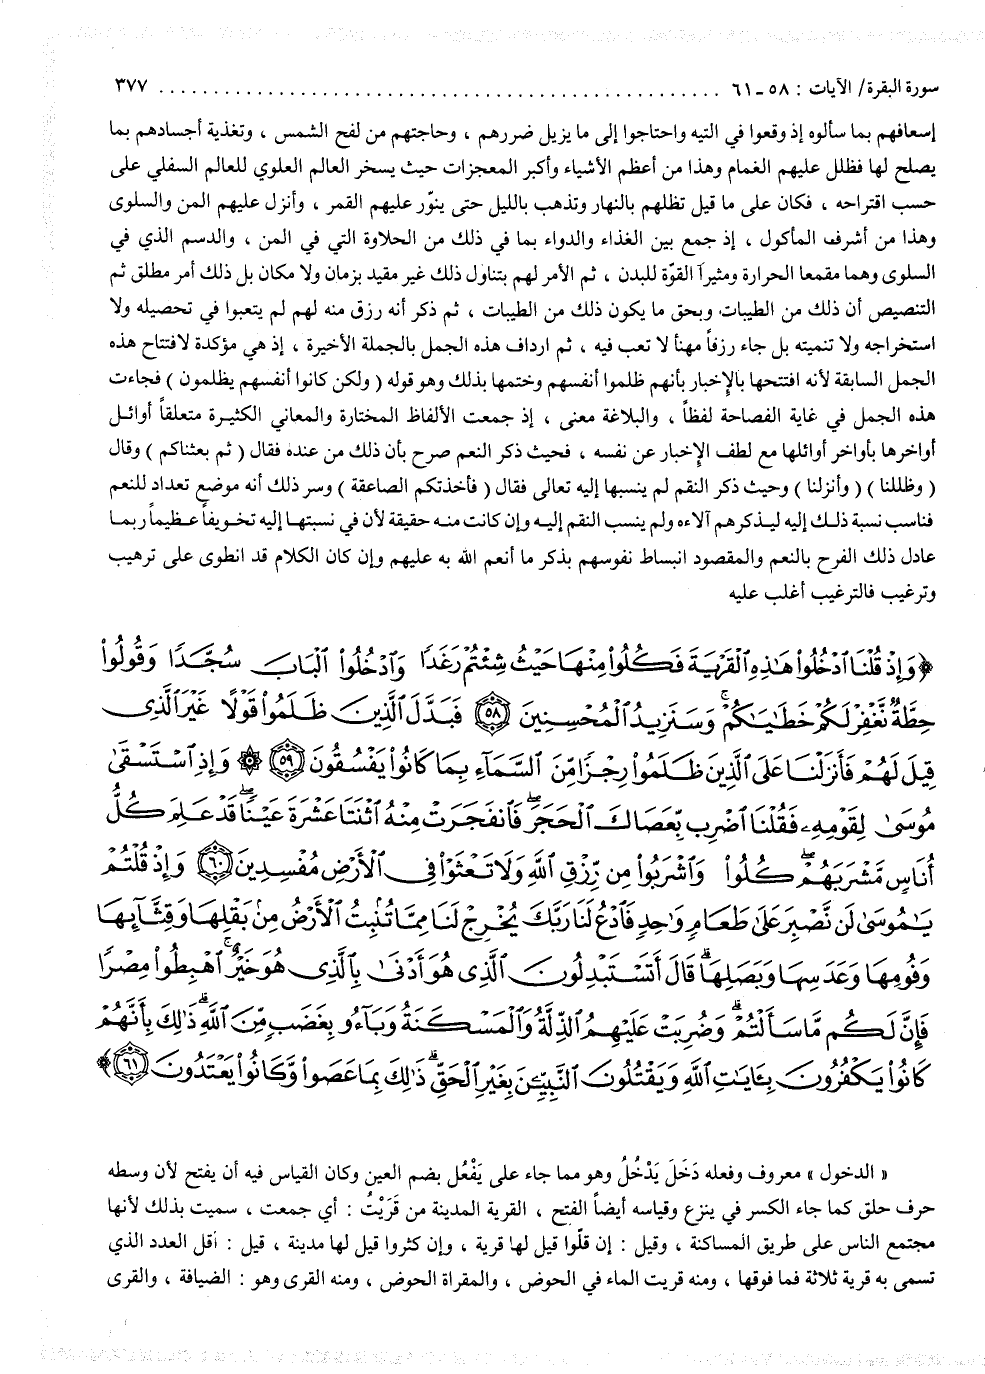 سورة البقرة/ الآيات : ٥٨ ـ ٦١ ................................................ ٣٧٧
إسعافهم بما سألوه إذ وقعوا في التيه واحتاجوا إلى ما يزيل ضررهم ، وحاجتهم من لفح الشمس ، وتغذية أجسادهم بما
يصلح لها فظلل عليهم الغمام وهذا من أعظم الأشياء وأكبر المعجزات حيث يسخر العالم العلوي للعالم السفلي على
حسب اقتراحه ، فكان على ما قيل تظلهم بالنهار وتذهب بالليل حتى ينوّر عليهم القمر ، وأنزل عليهم المن والسلوى
وهذا من أشرف المأكول ، إذ جمع بين الغذاء والدواء بما في ذلك من الحلاوة التي في المن ، والدسم الذي في
السلوى وهما مقمعا الحرارة ومثيرا القوّة للبدن ، ثم الأمر لهم بتناول ذلك غير مقيد بزمان ولا مكان بل ذلك أمر مطلق ثم
التنصيص أن ذلك من الطيبات وبحق ما يكون ذلك من الطيبات ، ثم ذكر أنه رزق منه لهم لم يتعبوا في تحصيله ولا
استخراجه ولا تنميته بل جاء رزقاً مهنأ لا تعب فيه ، ثم ارداف هذه الجمل بالجملة الأخيرة ، إذ هي مؤكدة لافتتاح هذه
الجمل السابقة لأنه افتتحها بالإخبار بأنهم ظلموا أنفسهم وختمها بذلك وهو قوله ( ولكن كانوا أنفسهم يظلمون ) فجاءت
هذه الجمل في غاية الفصاحة لفظاً ، والبلاغة معنى ، إذ جمعت الألفاظ المختارة والمعاني الكثيرة متعلقاً أوائل
أواخرها بأواخر أوائلها مع لطف الإخبار عن نفسه ، فحيث ذكر النعم صرح بأن ذلك من عنده فقال ( ثم بعثناكم ) وقال
( وظللنا ) ( وأنزلنا ) وحيث ذكر النقم لم ينسبها إليه تعالى فقال ( فأخذتكم الصاعقة ) وسر ذلك أنه موضع تعداد للنعم
فناسب نسبة ذلك إليه ليذكرهم آلاءه ولم ينسب النقم إليه وإن كانت منه حقيقة لأن في نسبتها إليه تخويفاً عظيماً ربما
عادل ذلك الفرح بالنعم والمقصود انبساط نفوسهم بذكر ما أنعم الله به عليهم وإن كان الكلام قد انطوى على ترهيب
وترغيب فالترغيب أغلب عليه
﴿ وَإِذْ قُلْنَا ٱدْخُلُوا۟ هَٰذِهِ ٱلْقَرْيَةَ فَكُلُوا۟ مِنْهَا حَيْثُ شِئْتُمْ رَغَدًا وَٱدْخُلُوا۟ ٱلْبَابَ سُجَّدًا وَقُولُوا۟
حِطَّةٌ نَّغْفِرْ لَكُمْ خَطَٰيَٰكُمْ ۚ وَسَنَزِيدُ ٱلْمُحْسِنِينَ ٥٨ فَبَدَّلَ ٱلَّذِينَ ظَلَمُوا۟ قَوْلًا غَيْرَ ٱلَّذِى
قِيلَ لَهُمْ فَأَنزَلْنَا عَلَى ٱلَّذِينَ ظَلَمُوا۟ رِجْزًا مِّنَ ٱلسَّمَآءِ بِمَا كَانُوا۟ يَفْسُقُونَ ٥٩ ۞ وَإِذِ ٱسْتَسْقَىٰ
مُوسَىٰ لِقَوْمِهِۦ فَقُلْنَا ٱضْرِب بِّعَصَاكَ ٱلْحَجَرَ ۖ فَٱنفَجَرَتْ مِنْهُ ٱثْنَتَا عَشْرَةَ عَيْنًا ۖ قَدْ عَلِمَ كُلُّ
أُنَاسٍ مَّشْرَبَهُمْ ۖ كُلُوا۟ وَٱشْرَبُوا۟ مِن رِّزْقِ ٱللَّهِ وَلَا تَعْثَوْا۟ فِى ٱلْأَرْضِ مُفْسِدِينَ ٦٠ وَإِذْ قُلْتُمْ
يَٰمُوسَىٰ لَن نَّصْبِرَ عَلَىٰ طَعَامٍ وَٰحِدٍ فَٱدْعُ لَنَا رَبَّكَ يُخْرِجْ لَنَا مِمَّا تُنۢبِتُ ٱلْأَرْضُ مِنۢ بَقْلِهَا وَقِثَّآئِهَا
وَفُومِهَا وَعَدَسِهَا وَبَصَلِهَا ۖ قَالَ أَتَسْتَبْدِلُونَ ٱلَّذِى هُوَ أَدْنَىٰ بِٱلَّذِى هُوَ خَيْرٌ ۚ ٱهْبِطُوا۟ مِصْرًا
فَإِنَّ لَكُم مَّا سَأَلْتُمْ ۗ وَضُرِبَتْ عَلَيْهِمُ ٱلذِّلَّةُ وَٱلْمَسْكَنَةُ وَبَآءُو بِغَضَبٍ مِّنَ ٱللَّهِ ۗ ذَٰلِكَ بِأَنَّهُمْ
كَانُوا۟ يَكْفُرُونَ بِـَٔايَٰتِ ٱللَّهِ وَيَقْتُلُونَ ٱلنَّبِيِّـۧنَ بِغَيْرِ ٱلْحَقِّ ۗ ذَٰلِكَ بِمَا عَصَوا۟ وَّكَانُوا۟ يَعْتَدُونَ ٦١ ﴾
« الدخول » معروف وفعله دَخَلَ يَدْخُلُ وهو مما جاء على يَفْعُل بضم العين وكان القياس فيه أن يفتح لأن وسطه
حرف حلق كما جاء الكسر في ينزع وقياسه أيضاً الفتح ، القرية المدينة من قَرَيْتُ : أي جمعت ، سميت بذلك لأنها
مجتمع الناس على طريق المساكنة ، وقيل : إن قلّوا قيل لها قرية ، وإن كثروا قيل لها مدينة ، قيل : أقل العدد الذي
تسمى به قرية ثلاثة فما فوقها ، ومنه قريت الماء في الحوض ، والمقراة الحوض ، ومنه القرى وهو : الضيافة ، والقرى